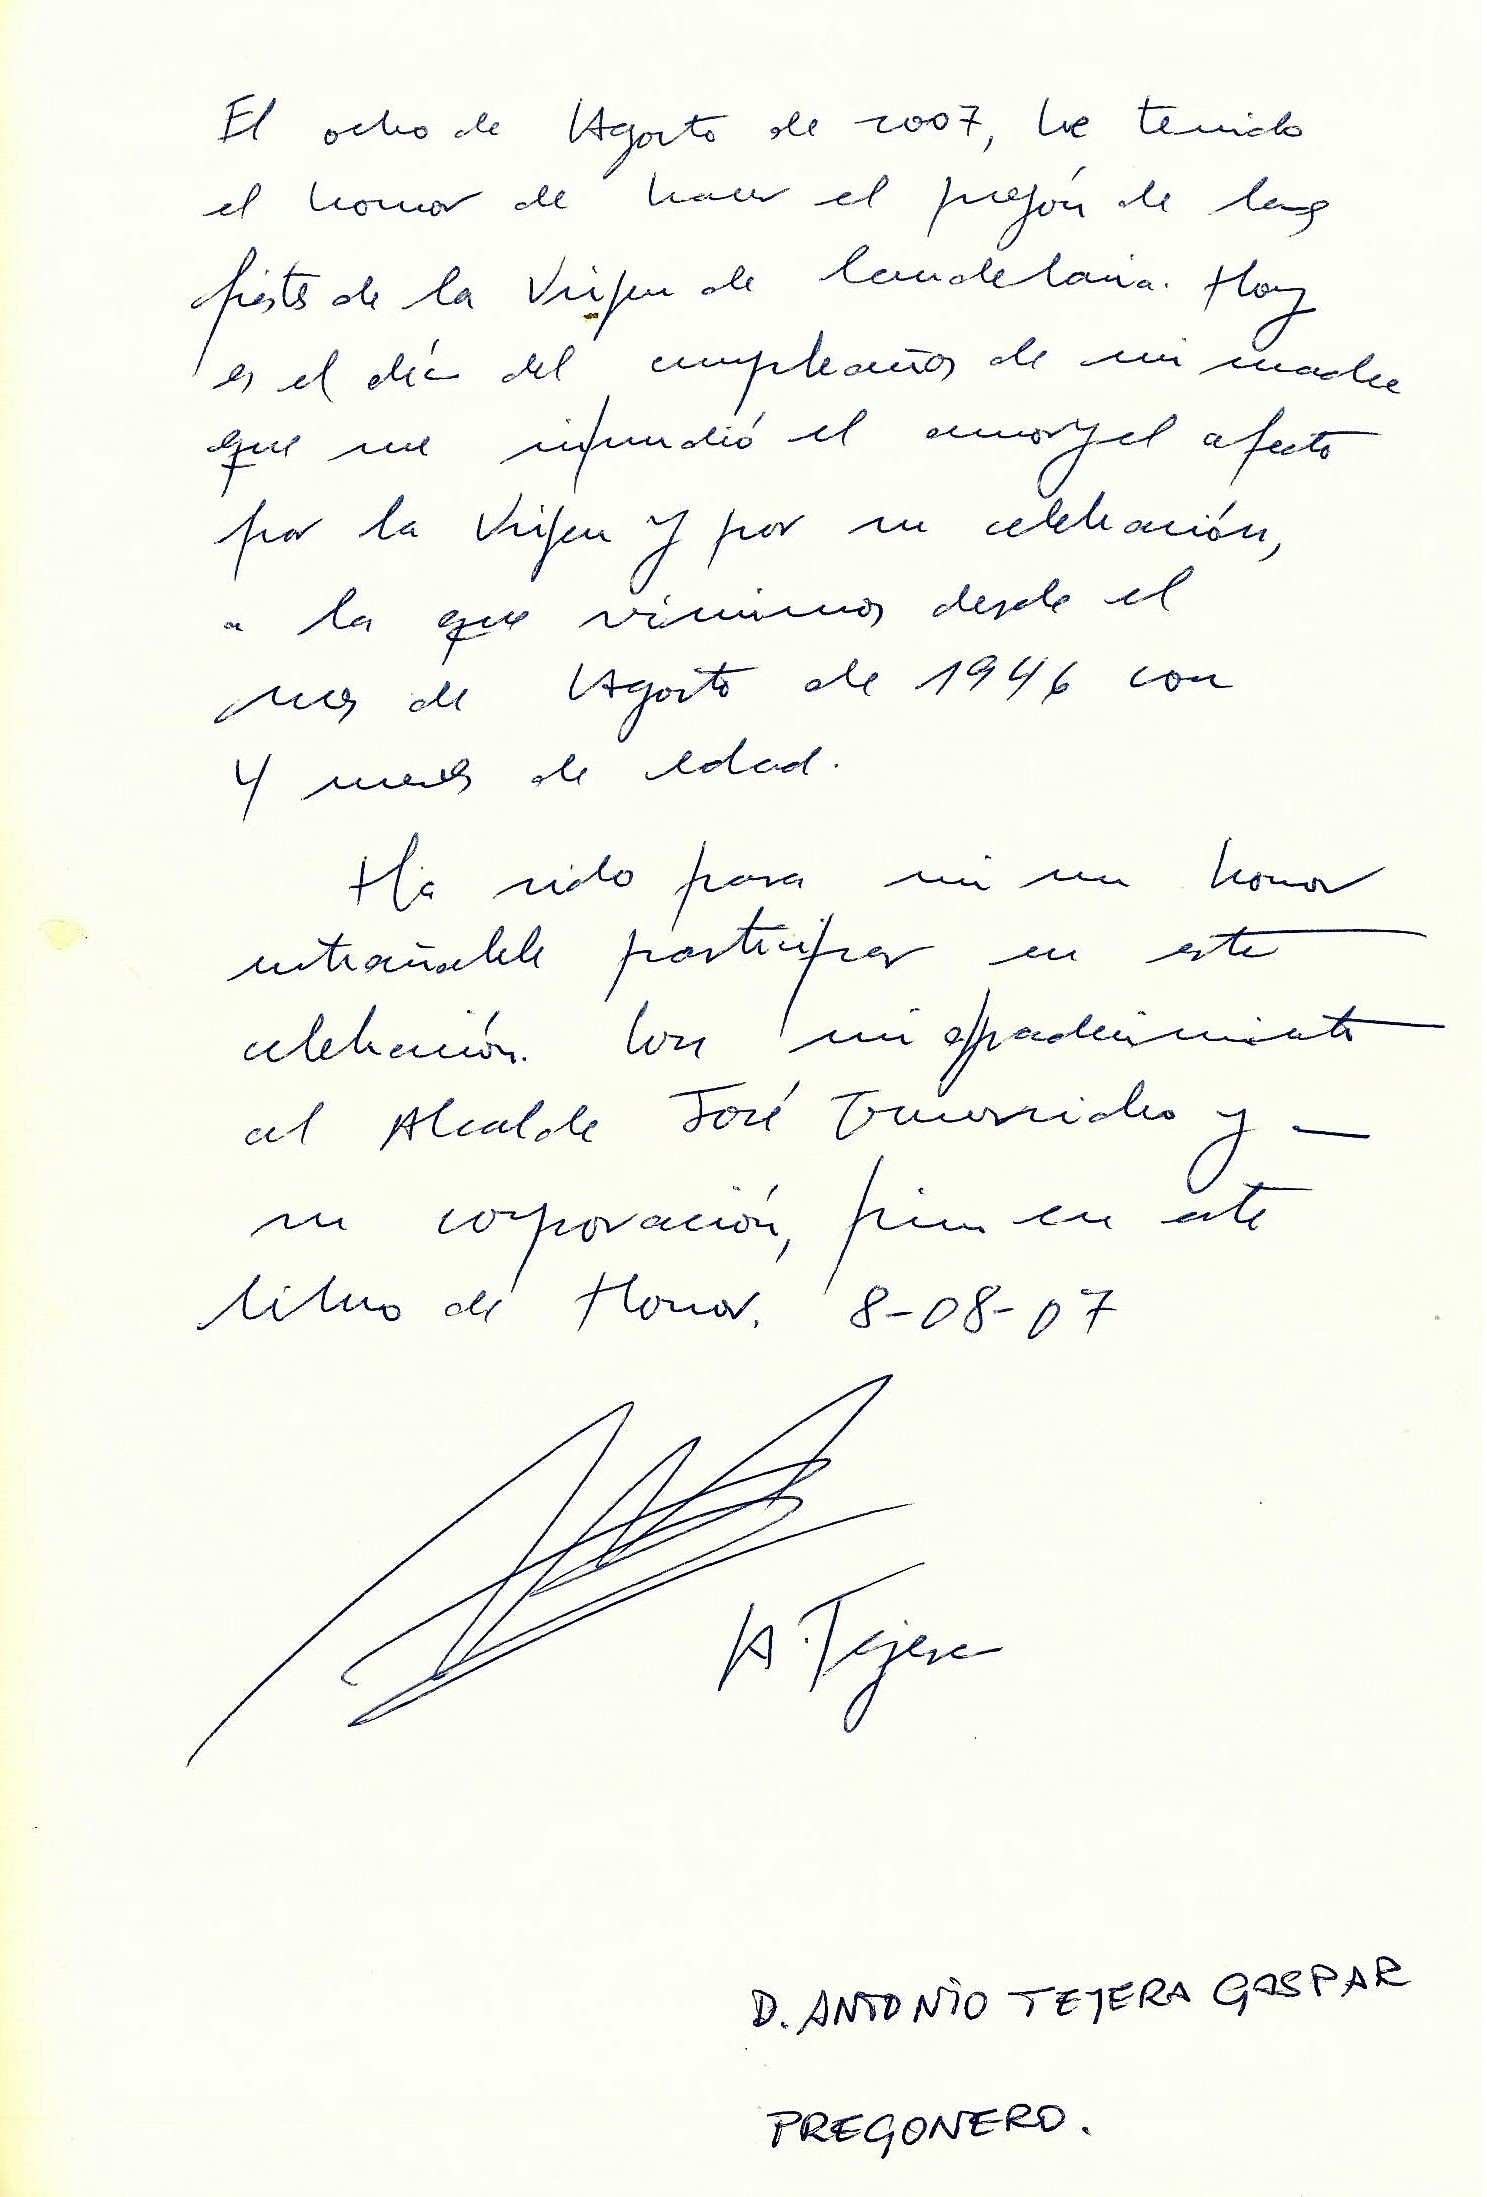 El ocho de Agosto de 2007, he tenido
el honor de hacer el pregón de las
fiestas de la Virgen de Candelaria. Hoy
es el día del cumpleaños de mi madre
que me infundió el amor y el afecto
por la Virgen y por su celebración,
a la que vinimos desde el
mes de Agosto de 1946 con
4 meses de edad.
Ha sido para mi un honor
entrañable participar en esta
celebración. Con mi agradecimiento
al Alcalde José Gumersindo y
su corporación, firmo en este
libro de Honor. 8-08-07
A. Tejera
D. ANTONIO TEJERA GASPAR
PREGONERO.